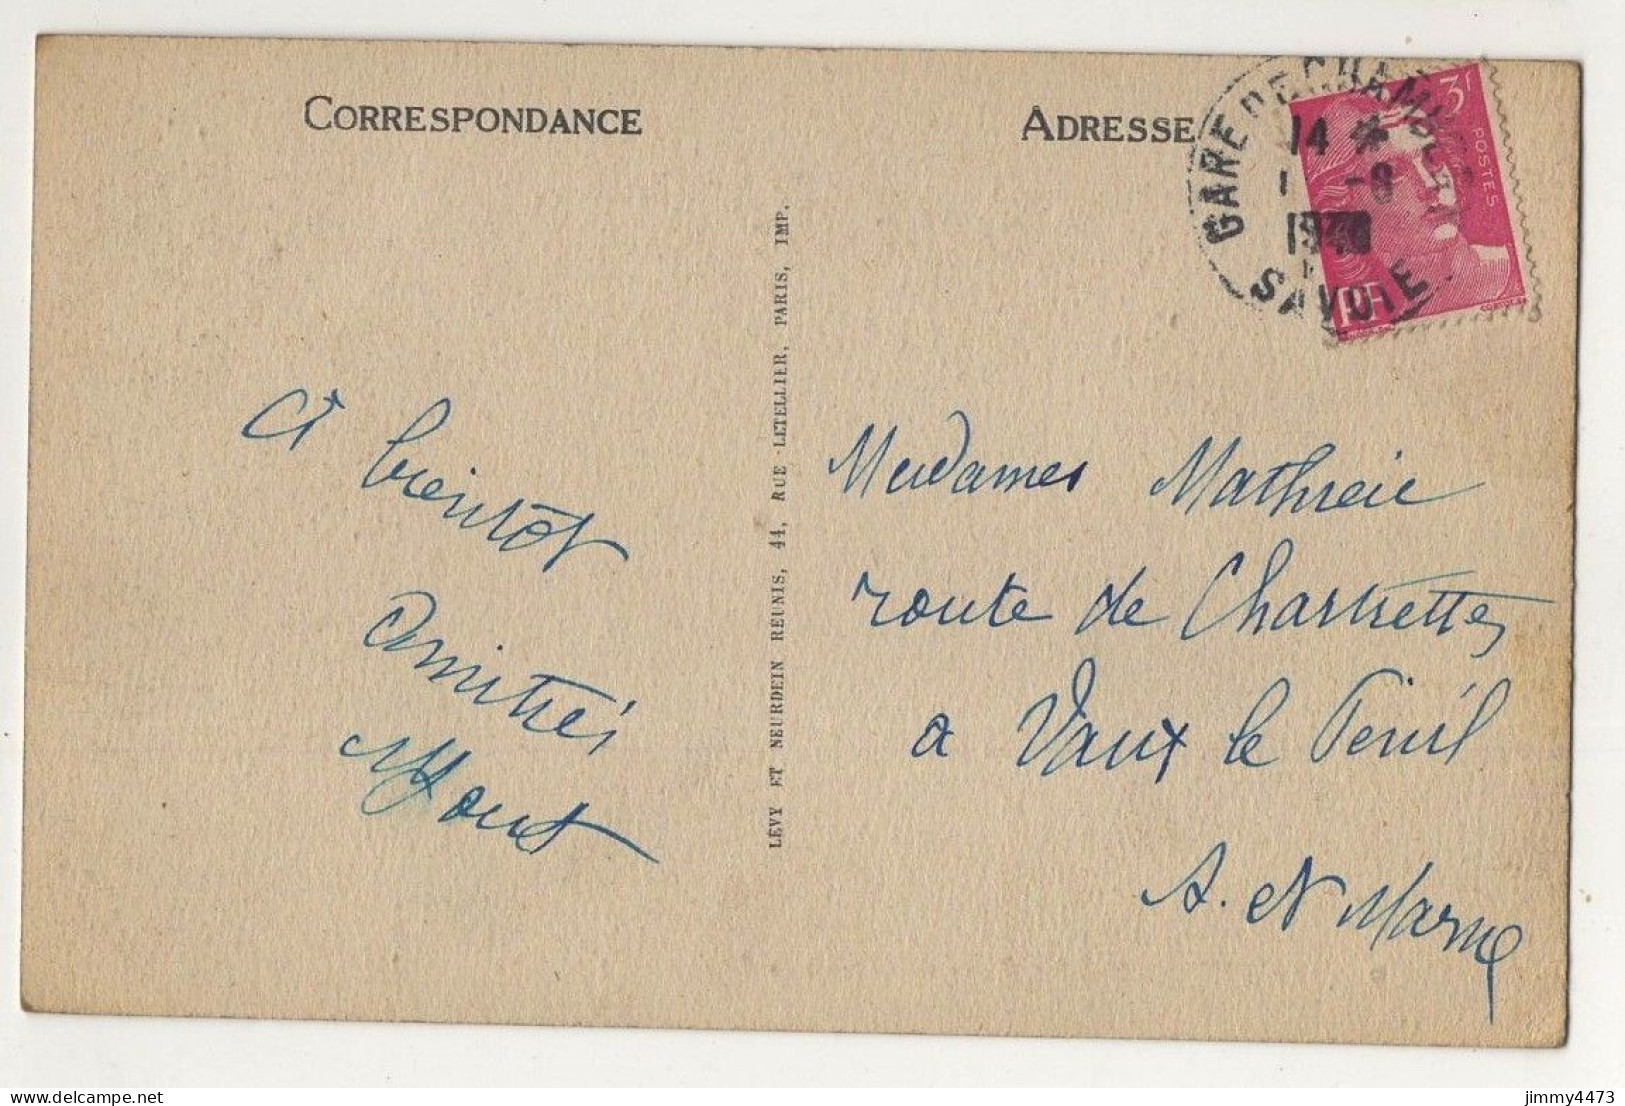 CORRESPONDANCE
ADRESSE
GARE DE CHAMBERY
14 *
1 -8
1946
SAVOIE
3F
POSTES
RF
A bientôt
Amitiés
LÉVY ET NEURDEIN RÉUNIS, 44, RUE LETELLIER, PARIS, IMP.
Mesdames Mathieu
route de Chartrettes
a Vaux le Penil
S. et Marne
jimmy4473